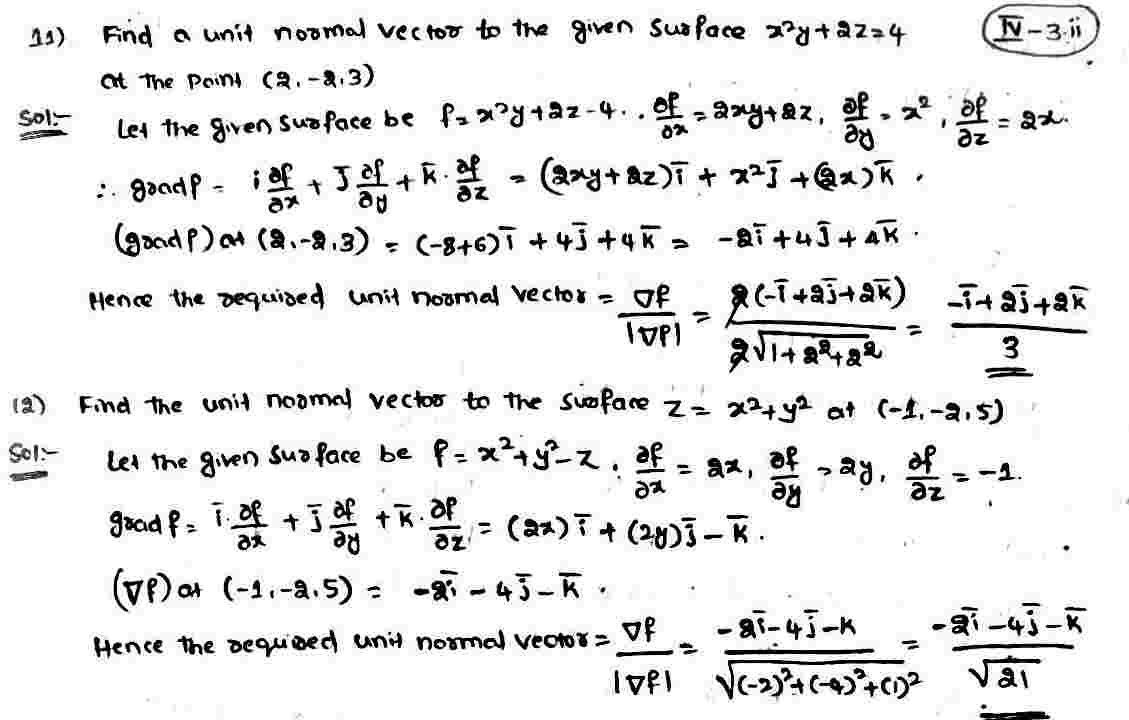 11) Find a unit normal vector to the given surface x²y+2z=4
IV-3.ii
at the point (2,-2,3)
Sol:- Let the given surface be f=x²y+2z-4. ∂f/∂x = 2xy+2z, ∂f/∂y = x², ∂f/∂z = 2x.
∴ grad f = i ∂f/∂x + j̄ ∂f/∂y + k̄.∂f/∂z = (2xy+2z)ī + x²j̄ + (2x)k̄.
(grad f) at (2,-2,3) = (-8+6)ī + 4j̄ + 4k̄ = -2ī+4j̄+4k̄.
Hence the required unit normal vector = ∇f/|∇f| = 2(-ī+2j̄+2k̄)/2√1+2²+2² = -ī+2j̄+2k̄/3
(2) Find the unit normal vector to the surface z = x²+y² at (-1,-2,5)
Sol:- Let the given surface be f=x²+y²-z. ∂f/∂x = 2x, ∂f/∂y = 2y, ∂f/∂z = -1.
grad f = ī.∂f/∂x + j̄ ∂f/∂y + k̄.∂f/∂z = (2x)ī + (2y)j̄ - k̄.
(∇f) at (-1,-2,5) = -2ī - 4j̄ - k̄.
Hence the required unit normal vector = ∇f/|∇f| = -2ī-4j̄-k/√(-2)²+(-4)²+(1)² = -2ī-4j̄-k̄/√21